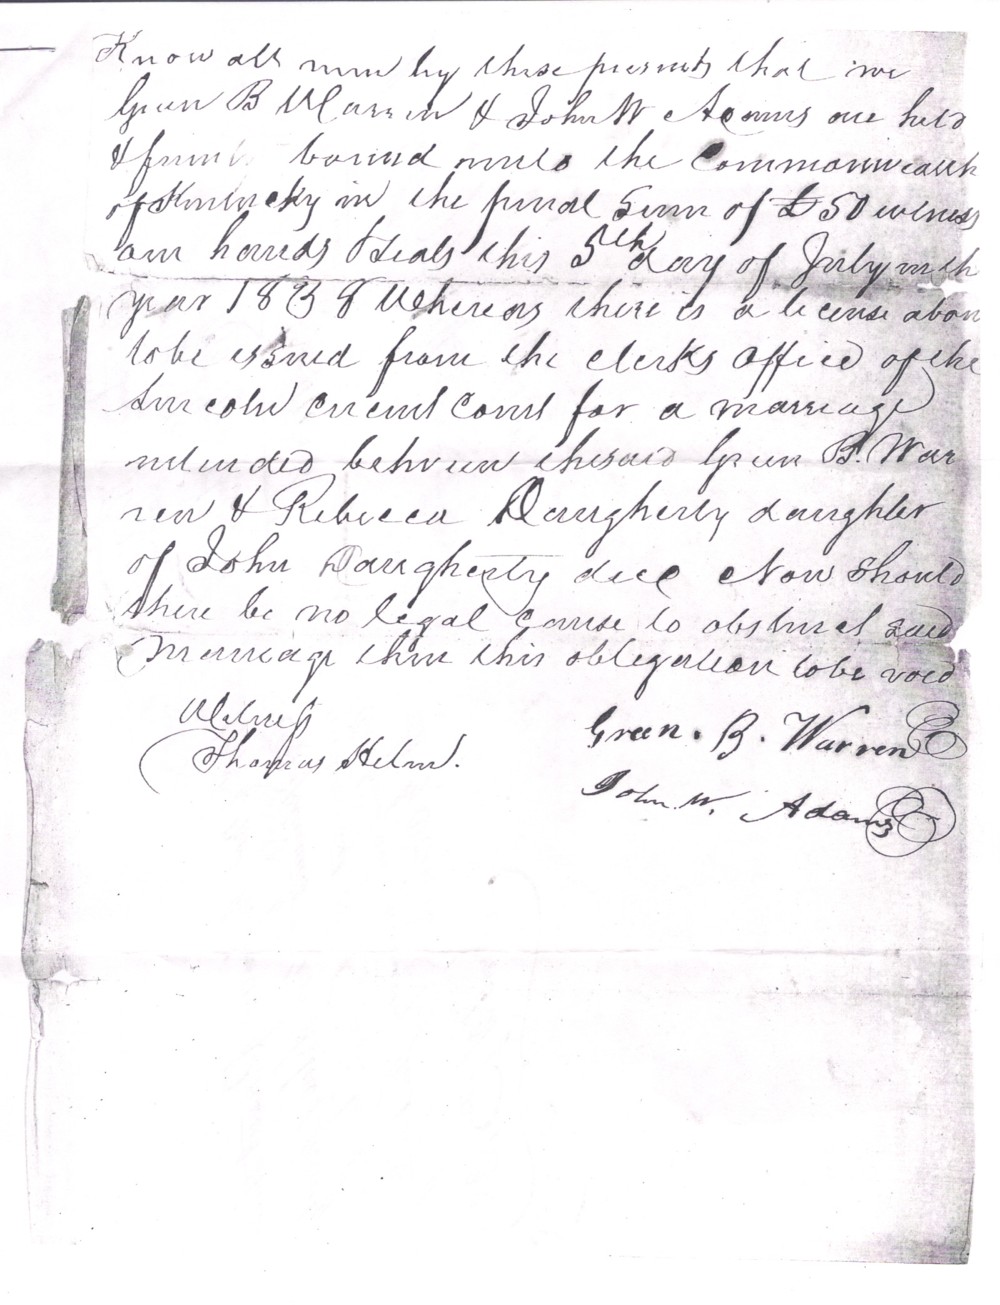 Know all men by these presents that we
Green B Warren & John W Adams are held
& firmly bound unto the Commonwealth
of Kentucky in the penal Sum of £50 witness
our hands & seals this 5th day of July in th
year 1838 Whereas there is a license abou
to be issued from the clerks office of the
Lincoln circuit Court for a marriage
intended between the said Green B. War
ren & Rebecca Daugherty daughter
of John Daugherty decd Now Should
there be no legal cause to obstruct said
Marriage then this obligation to be void
Witness
Thomas Helm.
Green. B. Warren
John. W. Adams